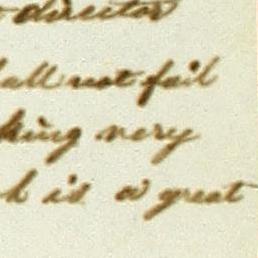 director
all not fail
king very
h is a great